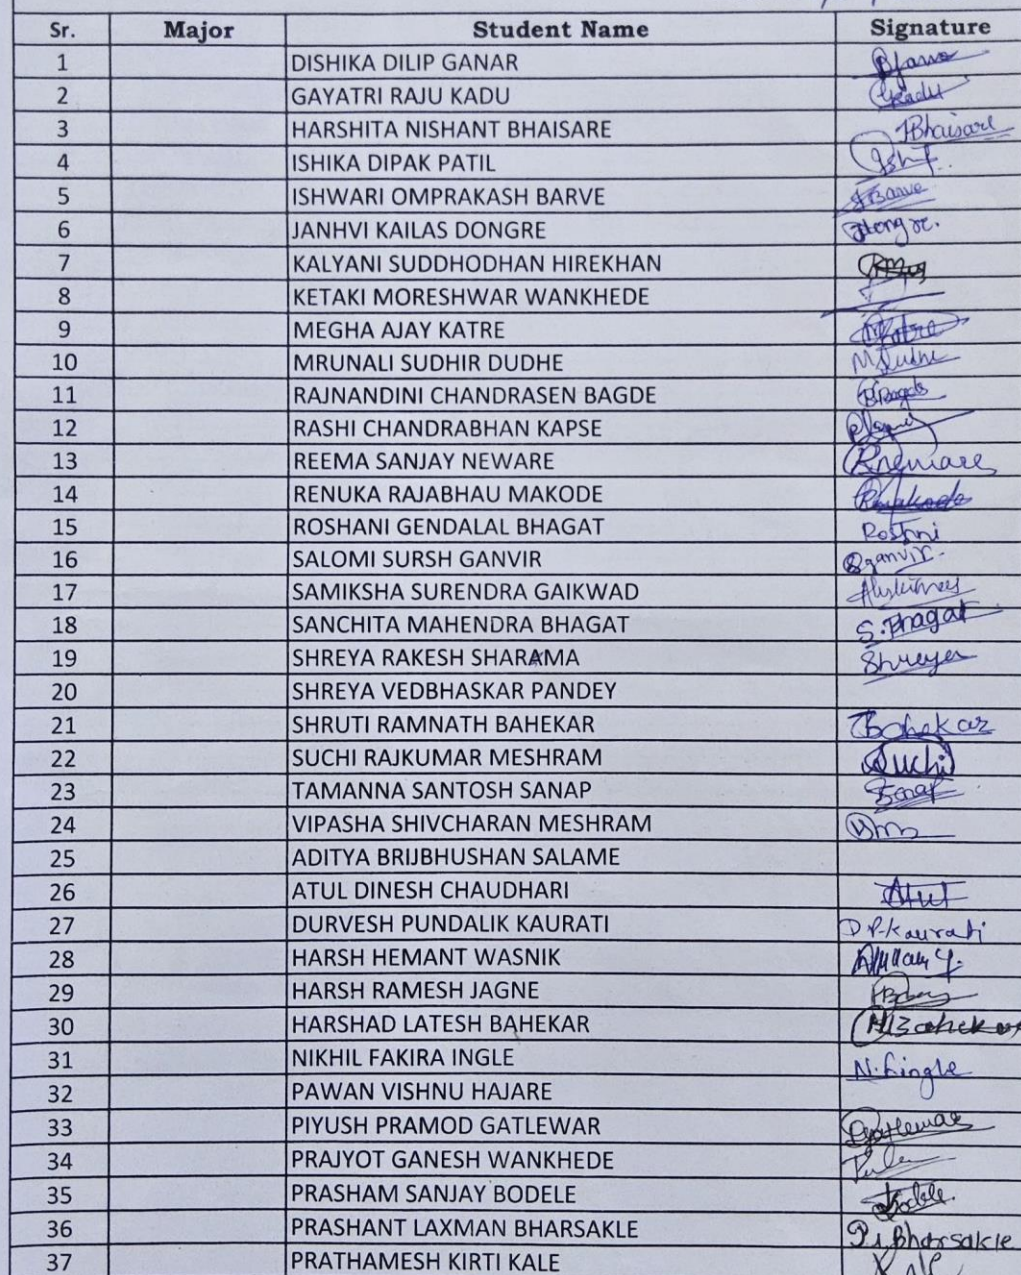 Sr. Major Student Name Signature
1 DISHIKA DILIP GANAR
2 GAYATRI RAJU KADU Gkadu
3 HARSHITA NISHANT BHAISARE HBhaisare
4 ISHIKA DIPAK PATIL
5 ISHWARI OMPRAKASH BARVE IBarve
6 JANHVI KAILAS DONGRE JDongre.
7 KALYANI SUDDHODHAN HIREKHAN
8 KETAKI MORESHWAR WANKHEDE
9 MEGHA AJAY KATRE MKatre
10 MRUNALI SUDHIR DUDHE MDudhe
11 RAJNANDINI CHANDRASEN BAGDE RBagde
12 RASHI CHANDRABHAN KAPSE
13 REEMA SANJAY NEWARE Rneware
14 RENUKA RAJABHAU MAKODE Rmakode
15 ROSHANI GENDALAL BHAGAT Roshni
16 SALOMI SURSH GANVIR Sganvir.
17 SAMIKSHA SURENDRA GAIKWAD
18 SANCHITA MAHENDRA BHAGAT S.Bhagat
19 SHREYA RAKESH SHARAMA Shreya
20 SHREYA VEDBHASKAR PANDEY
21 SHRUTI RAMNATH BAHEKAR SBahekar
22 SUCHI RAJKUMAR MESHRAM Suchi
23 TAMANNA SANTOSH SANAP Sanap
24 VIPASHA SHIVCHARAN MESHRAM
25 ADITYA BRIJBHUSHAN SALAME
26 ATUL DINESH CHAUDHARI Atul
27 DURVESH PUNDALIK KAURATI D.P.Kaurati
28 HARSH HEMANT WASNIK
29 HARSH RAMESH JAGNE
30 HARSHAD LATESH BAHEKAR HBahekar
31 NIKHIL FAKIRA INGLE N.f.ingle
32 PAWAN VISHNU HAJARE
33 PIYUSH PRAMOD GATLEWAR Pgatlewar
34 PRAJYOT GANESH WANKHEDE
35 PRASHAM SANJAY BODELE
36 PRASHANT LAXMAN BHARSAKLE P.l.Bharsakle
37 PRATHAMESH KIRTI KALE